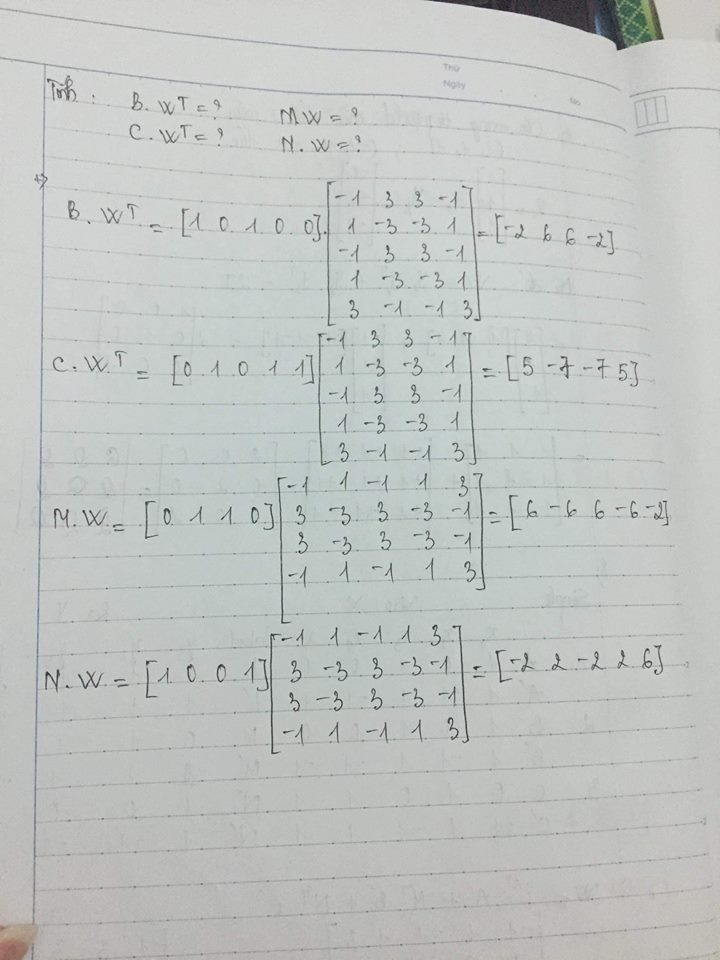 Thứ
Ngày
No
Tính : B. Wᵀ = ? M W = ?
C. Wᵀ = ? N. W = ?
=>
B. Wᵀ = [1 0 1 0 0]. [-1 3 3 -1
1 -3 -3 1
-1 3 3 -1
1 -3 -3 1
3 -1 -1 3] = [-2 6 6 -2]
C. Wᵀ = [0 1 0 1 1] [-1 3 3 -1
1 -3 -3 1
-1 3 3 -1
1 -3 -3 1
3 -1 -1 3] = [5 -7 -7 5]
M. W = [0 1 1 0] [-1 1 -1 1 3
3 -3 3 -3 -1
3 -3 3 -3 -1
-1 1 -1 1 3] = [6 -6 6 -6 -2]
N. W = [1 0 0 1] [-1 1 -1 1 3
3 -3 3 -3 -1
3 -3 3 -3 -1
-1 1 -1 1 3] = [-2 2 -2 2 6]